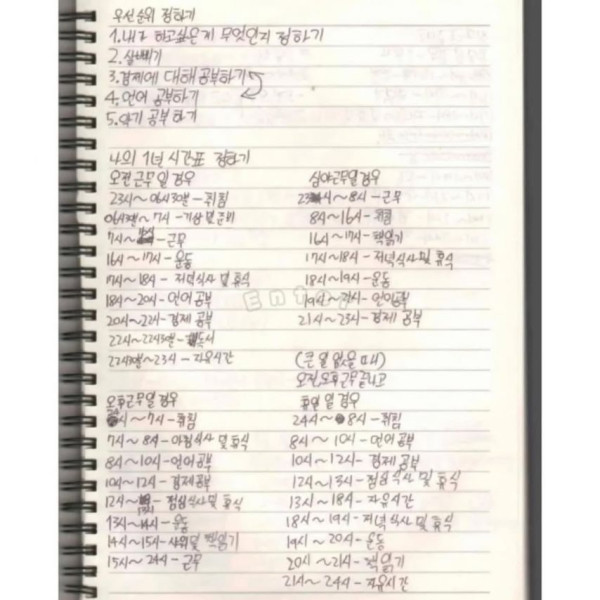 우선순위 정하기
1.내가 하고싶은게 무엇인지 정하기
2.살빼기
3.경제에 대해 공부하기
4.언어 공부하기
5.악기 공부하기
나의 1년 시간표 정하기
오전근무일경우
23시~06시30분-취침
06시30분~7시-기상 및 준비
7시~ -근무
16시~17시-운동
17시~18시-저녁식사 및 휴식
18시~20시-언어공부
20시~22시-경제 공부
22시~22시30분-독서
22시30분~23시-자유시간
심야근무일경우
23시~8시-근무
8시~16시-취침
16시~17시-책읽기
17시~18시-저녁식사 및 휴식
18시~19시-운동
19시~21시-언어공부
21시~23시-경제 공부
Entry
오후근무일경우
~7시-취침
7시~8시-아침식사 및 휴식
8시~10시-언어공부
10시~12시-경제공부
12시~13시-점심식사 및 휴식
13시~14시-운동
14시~15시-샤워및 책읽기
15시~24시-근무
(큰 일 없을 때)
오전,오후근무끝나고
휴일일경우
24시~8시-취침
8시~10시-언어공부
10시~12시-경제공부
12시~13시-점심식사 및 휴식
13시~18시-자유시간
18시~19시-저녁식사 및 휴식
19시~20시-운동
20시~21시-책읽기
21시~24시-자유시간